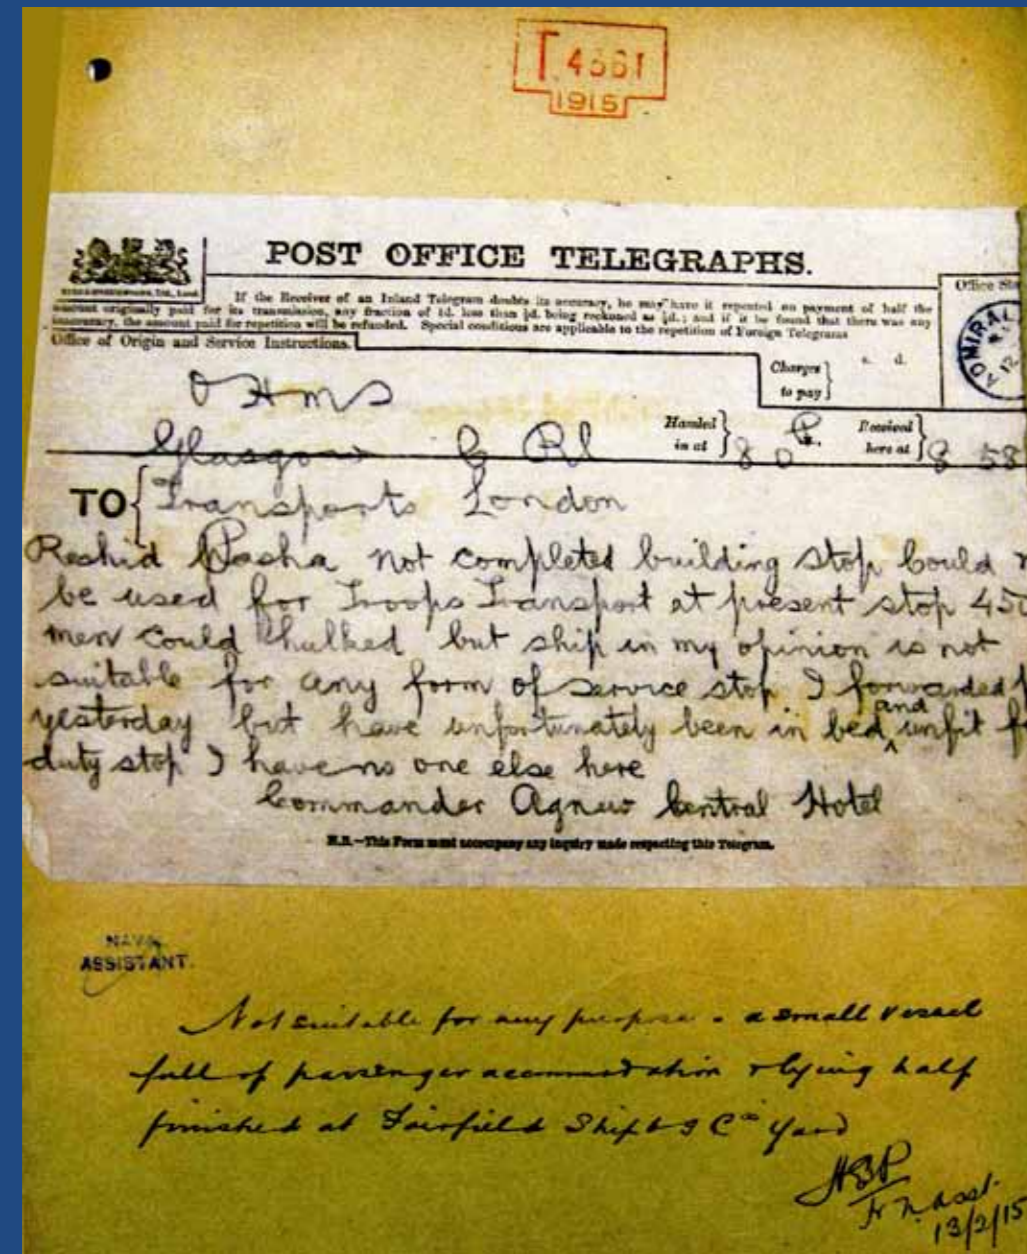 T 4561
1915
POST OFFICE TELEGRAPHS.
If the Receiver of an Inland Telegram doubts its accuracy, he may have it repeated on payment of half the
amount originally paid for its transmission, any fraction of 1d. less than ½d. being reckoned as ½d.; and if it be found that there was any
inaccuracy, the amount paid for repetition will be refunded. Special conditions are applicable to the repetition of Foreign Telegrams
Office of Origin and Service Instructions.
Office
ADMIRAL
12
Charges
to pay
s. d.
OHMS
Handed
in at
8 0
Received
here at
8 58
Glasgow
TO Transports London
Reshid Pasha not completed building stop Could
be used for Troops Transport at present stop 45
men could hulked but ship in my opinion is not
suitable for any form of service stop I forwarded
yesterday but have unfortunately been in bed and unfit
duty stop I have no one else here
Commander Agnew Central Hotel
N.B.—This Form must accompany any inquiry made respecting this Telegram.
NAVAL
ASSISTANT.
Not suitable for any purpose - a small vessel
full of passenger accommodation & lying half
finished at Fairfield Shipbg Co Yard
Asst.
13/2/15